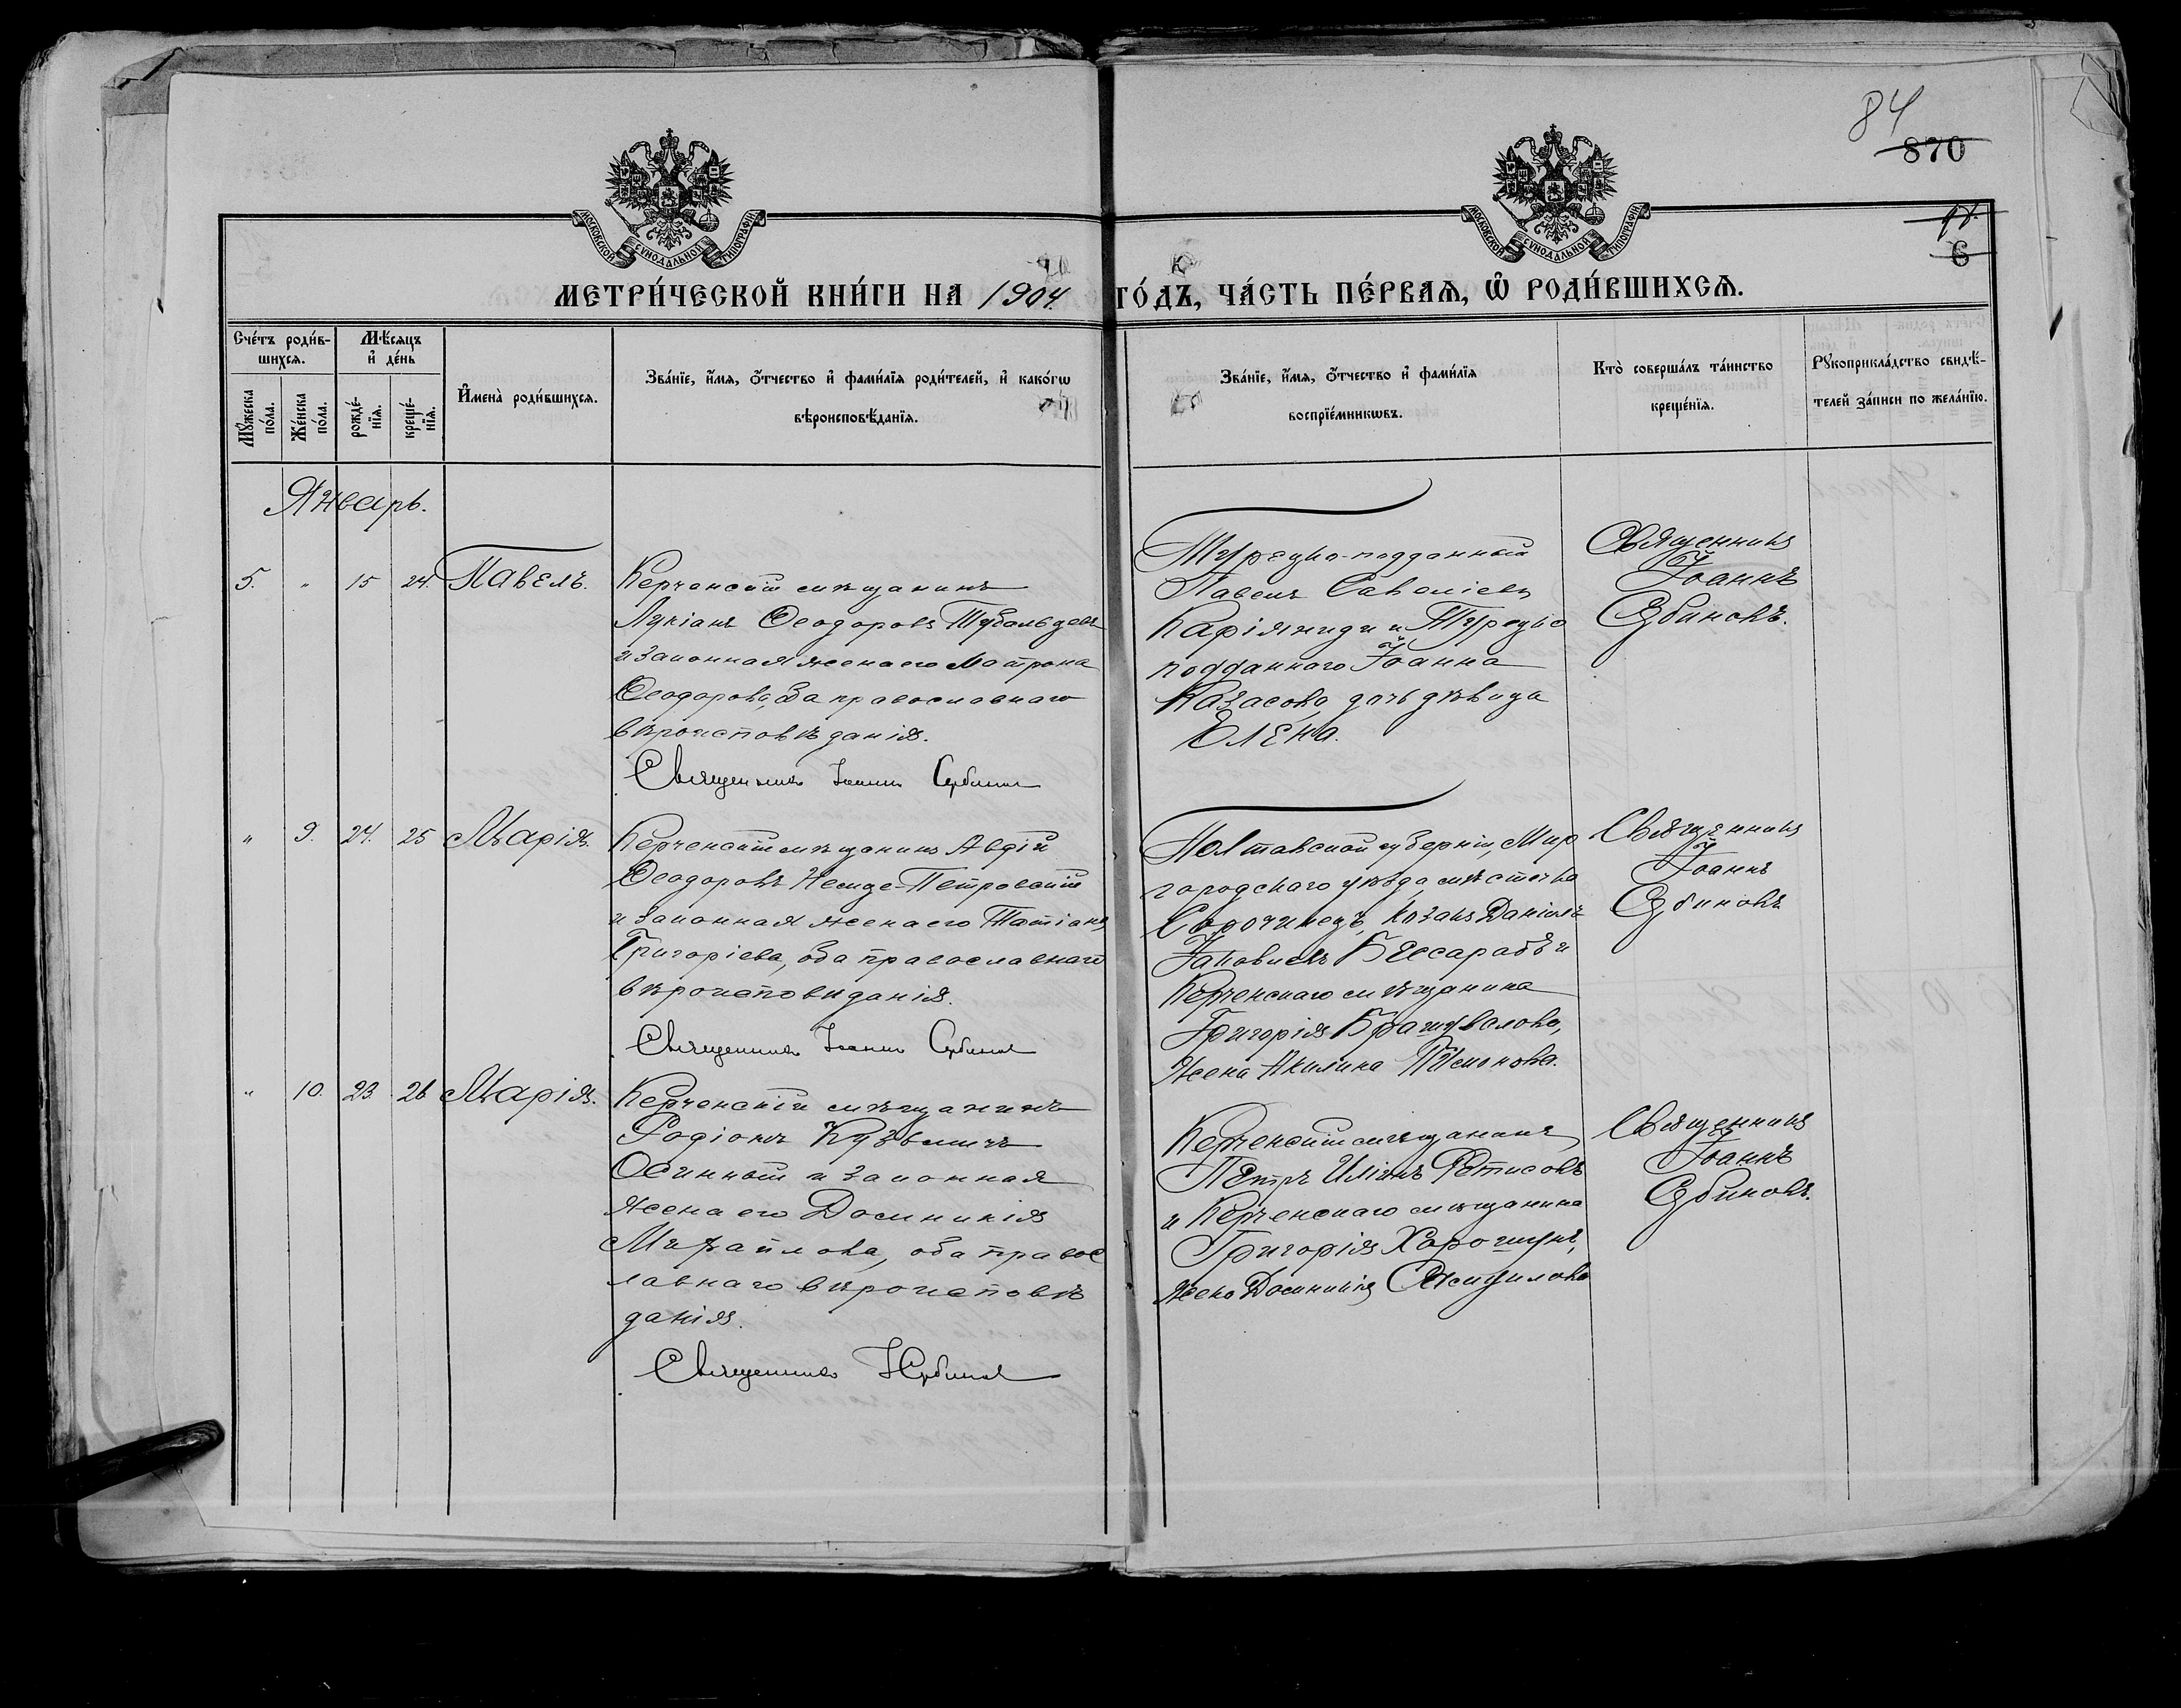 84
870
11.
6
МОСКОВСКОЙ СѴНОДАЛЬНОЙ ТИПОГРАФІИ
МОСКОВСКОЙ СѴНОДАЛЬНОЙ ТИПОГРАФІИ
МЕТРИ́ЧЕСКОЙ КНИ́ГИ НА 1904. ГО́ДЪ, ЧА́СТЬ ПЕ́РВАѦ, Ѡ҆ РОДИ́ВШИХСѦ.
Сче́тъ роди́в-
шихсѧ.
Мѣ́сѧцъ
и҆ де́нь
Мꙋ́жеска по́ла.
Же́нска по́ла.
рожде́-нїѧ.
креще́-нїѧ.
И҆мена̀ роди́вшихсѧ.
Зва́нїе, и҆́мѧ, ѻ҆́тчество и҆ фами́лїѧ роди́телей, и҆ како́гѡ
вѣроисповѣ́данїѧ.
Зва́нїе, и҆́мѧ, ѻ҆́тчество и҆ фами́лїѧ
воспрїе́мникѡвъ.
Кто̀ соверша́лъ та́инство
креще́нїѧ.
Рꙋкоприкла́дство свидѣ́-
телей за́писи по жела́нїю.
Январь.
5. " 15 24. Павелъ.
Керченскій мѣщанинъ
Лукіанъ Ѳеодоровъ
и законная жена его Матрона
Ѳеодорова, оба православнаго
вѣроисповѣданія.
Священникъ Іоаннъ Сербиновъ
Турецко-подданный
Павелъ Савеліевъ
Кафіяниди и Турецко
подданного Іоанна
Казасова, дочь дѣвица
Елена.
Священникъ
Іоаннъ
Сербиновъ.
" 9. 24. 25 Марія.
Керченскій мѣщанинъ Авдій
Ѳеодоровъ Петровскій
и законная жена его Татіана
Григоріева, оба православнаго
вѣроисповѣданія.
Священникъ Іоаннъ Сербиновъ
Полтавской губерніи, Мир
городскаго уѣзда, мѣстечка
Сорочинецъ, козакъ Даніилъ
Іаковлевъ Бессарабъ и
Керченскаго мѣщанина
Григорія
жена Акилина
Священникъ
Іоаннъ
Сербиновъ.
" 10. 23. 26 Марія.
Керченскій мѣщанинъ
Родіонъ Кузьминъ
Осинный и законная
жена его Домникія
Михайлова, оба правос
лавнаго вѣроисповѣ
данія.
Священникъ І Сербиновъ
Керченскій мѣщанинъ
Петръ Иліинъ Фетисовъ
и Керченскаго мѣщанина
Григорія Хорошунъ,
жена Домникія
Священникъ
Іоаннъ
Сербиновъ.